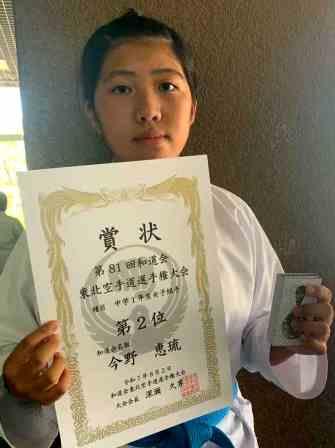 賞状
第81回和道会
東北空手道選手権大会
種目 中学1年生女子組手
第2位
和道会名取
今野 恵琉
令和7年8月2日
和道会東北空手道選手権大会
大会会長 深瀬 久